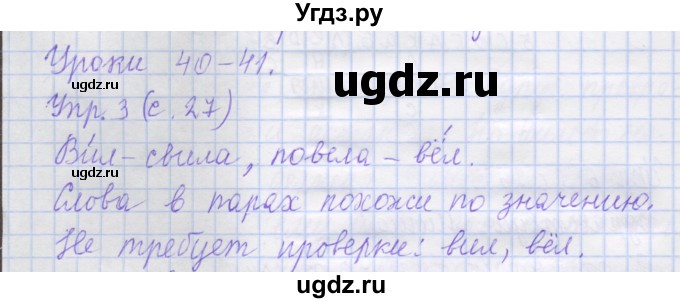 Угдз.ру
Уроки 40-41.
ugdz.ru
ugdz.ru
Упр. 3 (с. 27)
Вил - свила, повела - вёл.
ugdz.ru
Слова в парах похожи по значению.
Не требует проверки: вил, вёл.
ugdz.ru
ugdz.ru